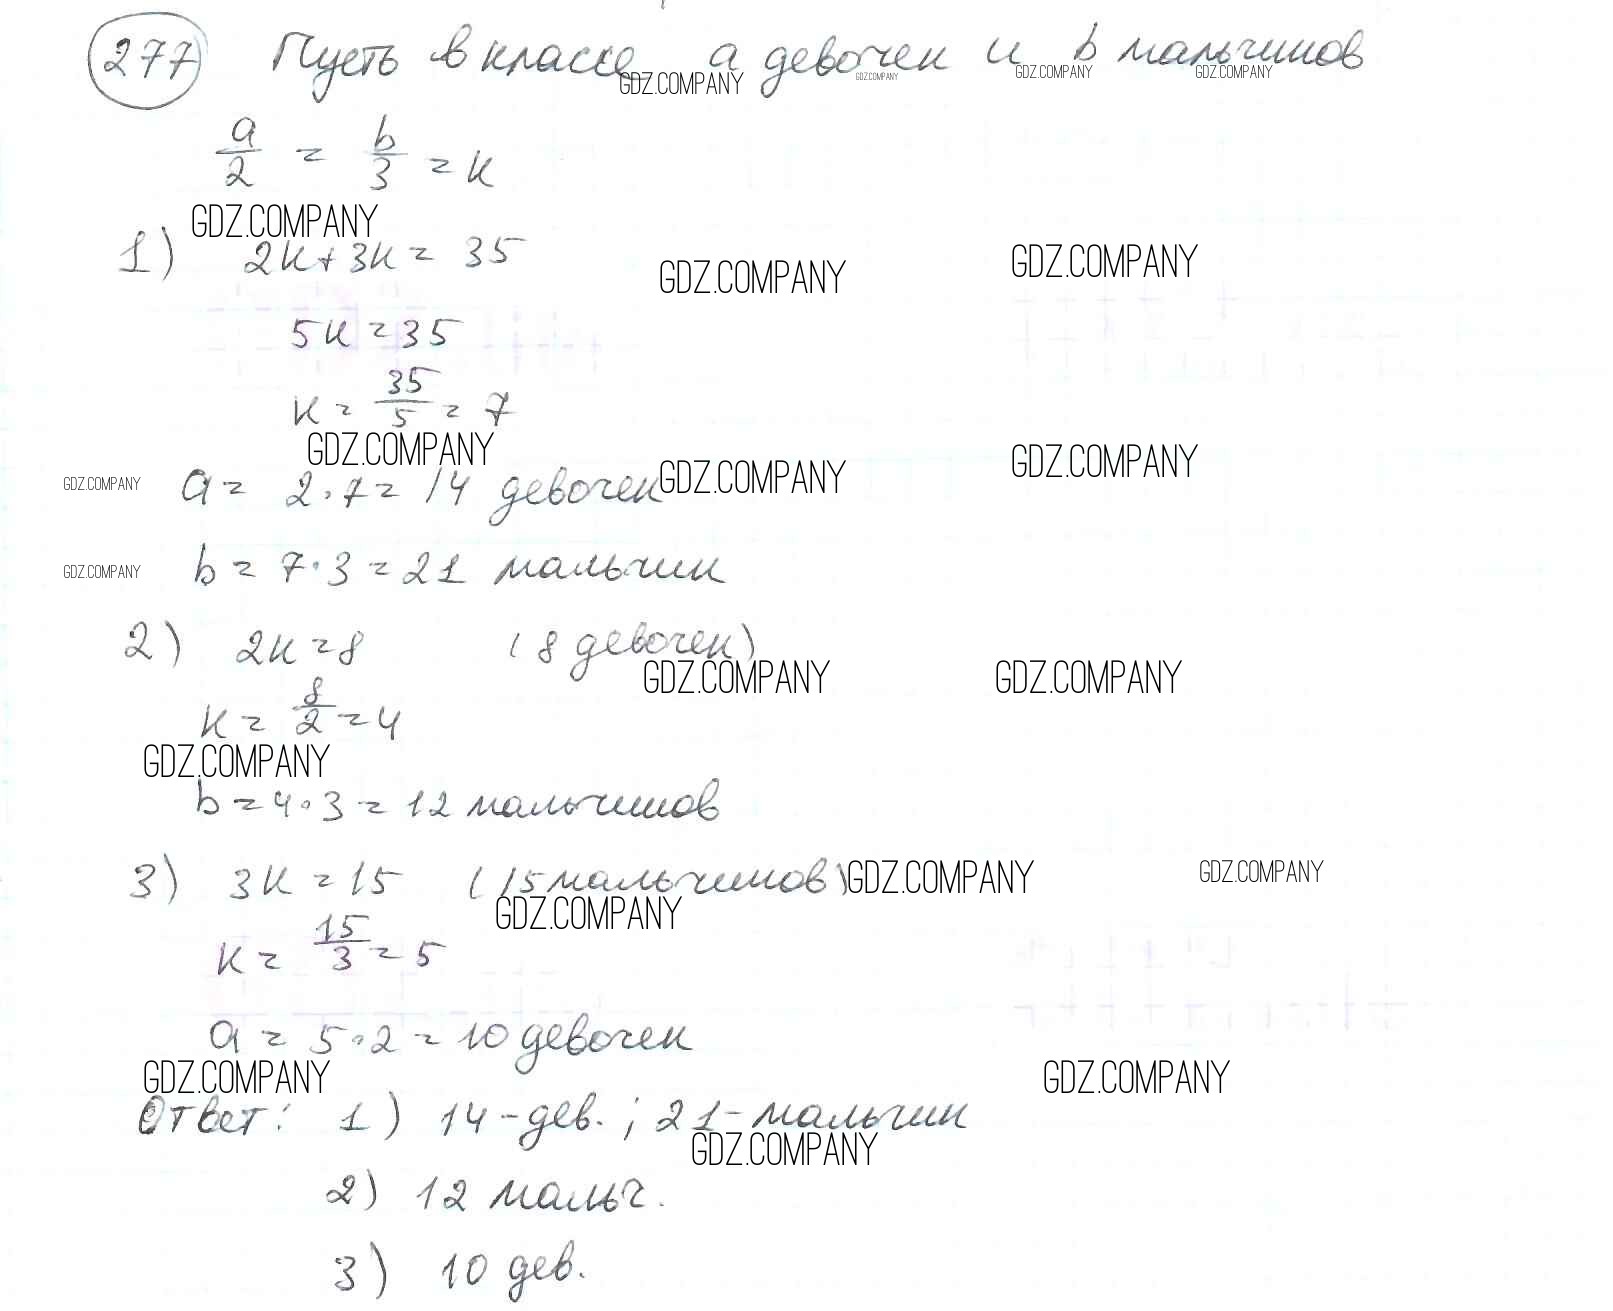 277 Пусть в классе a девочек и b мальчиков
GDZ.COMPANY GDZ.COMPANY GDZ.COMPANY GDZ.COMPANY
a/2 = b/3 = к
GDZ.COMPANY
1) 2к+3к = 35
GDZ.COMPANY GDZ.COMPANY
5к = 35
к = 35/5 = 7
GDZ.COMPANY GDZ.COMPANY GDZ.COMPANY
GDZ.COMPANY a = 2·7 = 14 девочек
GDZ.COMPANY b = 7·3 = 21 мальчик
2) 2к = 8 (8 девочек)
GDZ.COMPANY GDZ.COMPANY
к = 8/2 = 4
GDZ.COMPANY
b = 4·3 = 12 мальчиков
3) 3к = 15 (15 мальчиков) GDZ.COMPANY GDZ.COMPANY
GDZ.COMPANY
к = 15/3 = 5
a = 5·2 = 10 девочек
GDZ.COMPANY GDZ.COMPANY
Ответ: 1) 14-дев.; 21-мальчик
GDZ.COMPANY
2) 12 мальч.
3) 10 дев.